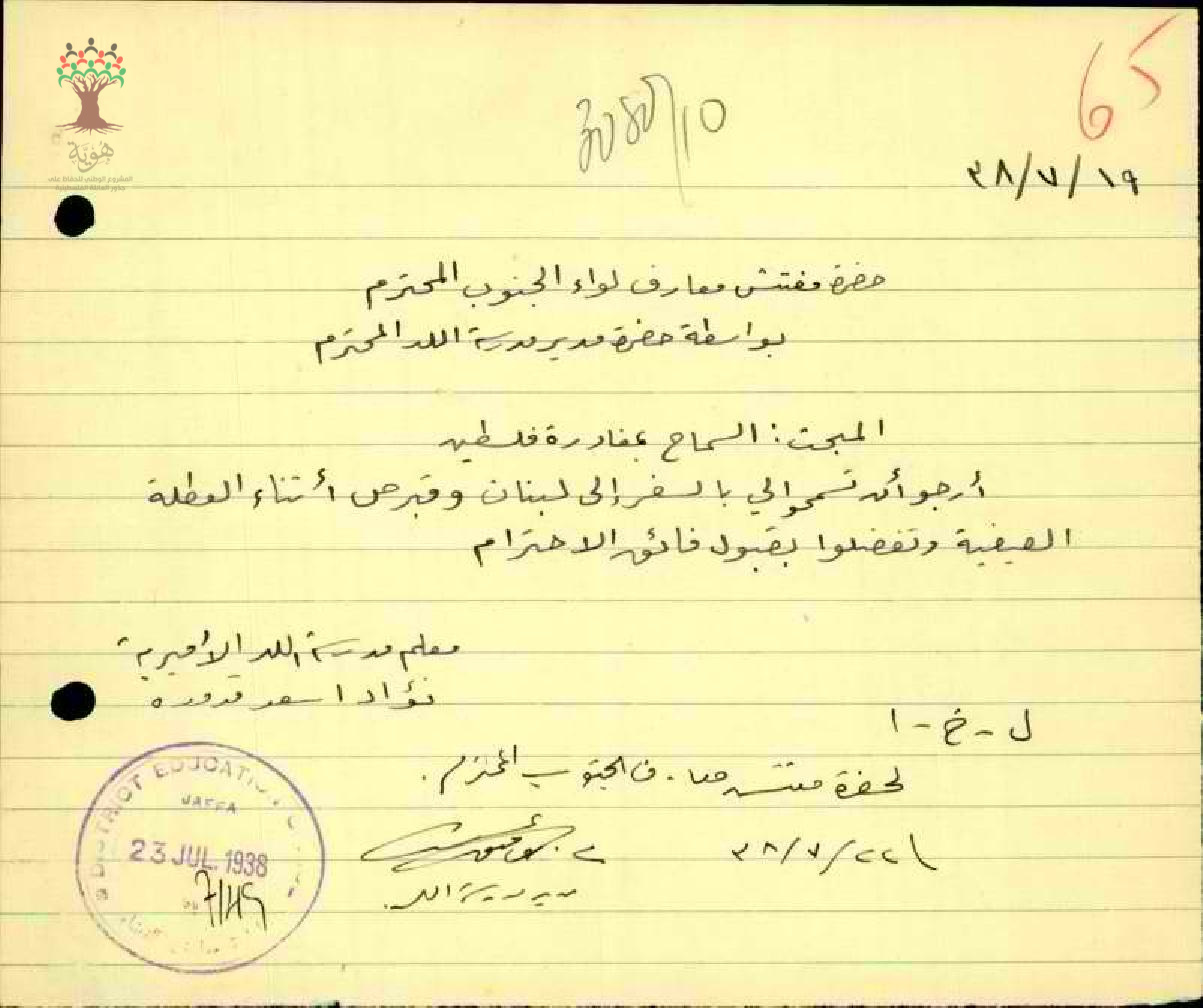 65
3080/10
٣٨/٧/١٩
هُوِيَّة
المشروع الوطني للحفاظ على
جذور العائلة الفلسطينية
حضرة مفتش معارف لواء الجنوب المحترم
بواسطة حضرة مدير مدرسة اللد المحترم
المبحث: السماح بمغادرة فلسطين
أرجو أن تسمحوا لي بالسفر إلى لبنان وقبرص أثناء العطلة
الصيفية وتفضلوا بقبول فائق الاحترام
معلم مدرسة اللد الأميرية
فؤاد اسعد قدوره
ل - خ - ا
لحضرة مفتش معارف الجنوب المحترم.
٣٨/٧/٢٢
مدير مدرسة اللد.
DISTRICT EDUCATION
JAFFA
23 JUL. 1938
7/49